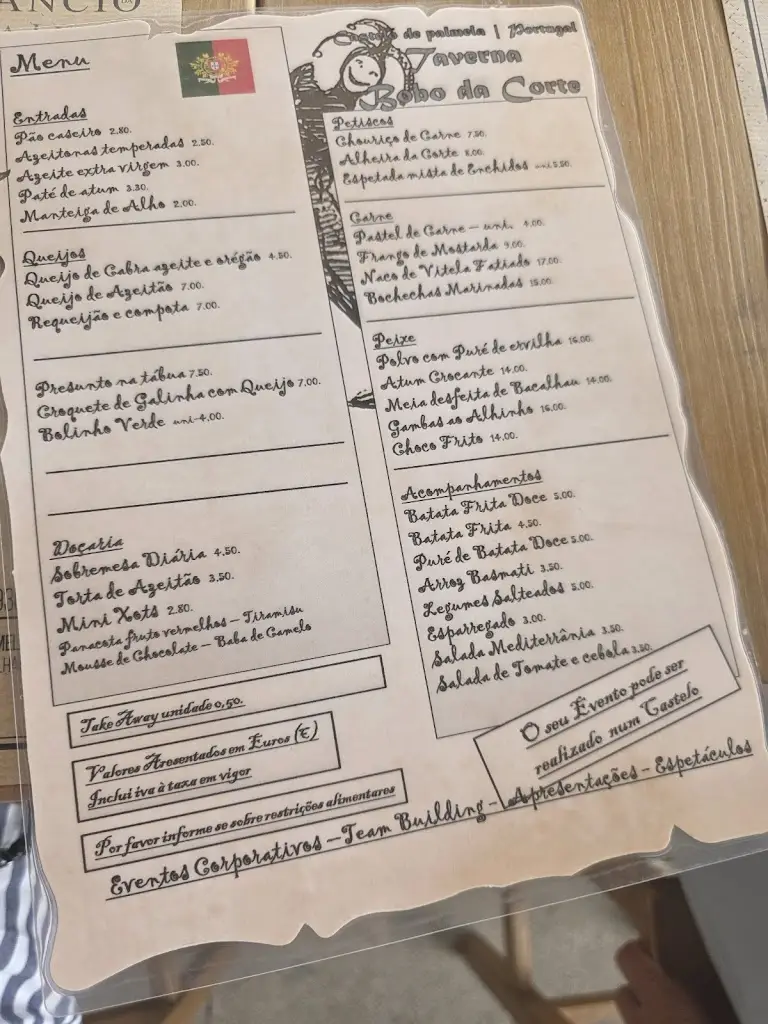 Menu
Entradas
Pão caseiro 2.80.
Azeitonas temperadas 2.50.
Azeite extra virgem 3.00.
Paté de atum 3.30.
Manteiga de Alho 2.00.
Queijos
Queijo de Cabra azeite e orégão 4.50.
Queijo de Azeitão 7.00.
Requeijão e compota 7.00.
Presunto na tábua 7.50.
Croquete de Galinha com Queijo 7.00.
Bolinho Verde uni-4.00.
Doçaria
Sobremesa Diária 4.50.
Torta de Azeitão 3.50.
Mini Xots 2.80.
Panacota fruto vermelhos – Tiramisu
Mousse de Chocolate – Baba de Camelo
Take Away unidade 0,50.
Valores Aresentados em Euros (€)
Inclui iva à taxa em vigor
Por favor informe se sobre restrições alimentares
Castelo de palmela | Portugal
Taverna
Bobo da Corte
Petiscos
Chouriço de Carne 7.50.
Alheira da Corte 8.00.
Espetada mista de Enchidos uni 5.50.
Carne
Pastel de Carne – uni. 4.00.
Frango de Mostarda 9.00.
Naco de Vitela Fatiado 17.00.
Bochechas Marinadas 15.00.
Peixe
Polvo com Puré de ervilha 16.00.
Atum Crocante 14.00.
Meia desfeita de Bacalhau 14.00.
Gambas ao Alhinho 16.00.
Choco Frito 14.00.
Acompanhamentos
Batata Frita Doce 5.00.
Batata Frita 4.50.
Puré de Batata Doce 5.00.
Arroz Basmati 3.50.
Legumes Salteados 5.00.
Esparregado 3.00.
Salada Mediterrânia 3.50.
Salada de Tomate e cebola 3.50.
O seu Evento pode ser
realizado num Castelo
Eventos Corporativos – Team Building - Apresentações - Espetáculos